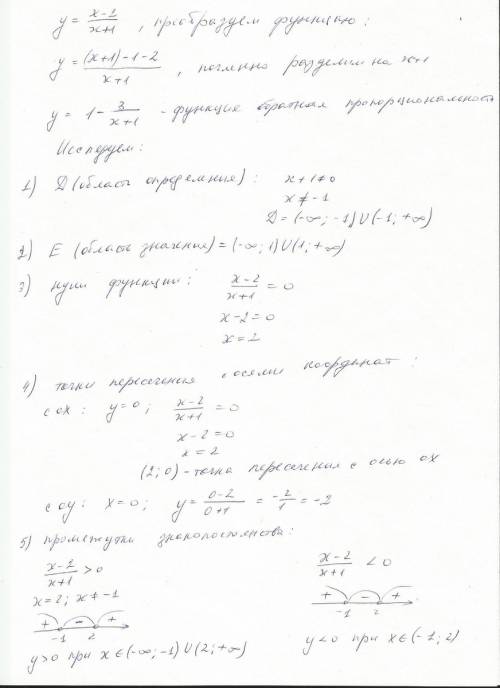 y = (x-2)/(x+1) , преобразуем функцию :
y = ((x+1)-1-2)/(x+1) , почленно разделим на x+1
y = 1 - 3/(x+1) - функция обратная пропорциональность
Исследуем :
1) D (область определения) : x+1≠0
x ≠ -1
D = (-∞; -1)∪(-1; +∞)
2) E (область значения) = (-∞; 1)∪(1; +∞)
3) нули функции : (x-2)/(x+1) = 0
x-2=0
x=2
4) точки пересечения с осями координат :
с ох : y=0 ; (x-2)/(x+1) = 0
x-2=0
x=2
(2; 0) - точка пересечения с осью ох
с оу: x=0 ; y = (0-2)/(0+1) = -2/1 = -2
5) промежутки знакопостоянства :
(x-2)/(x+1) > 0
x=2 ; x≠-1
+ - +
-1 2
y>0 при x∈(-∞; -1)∪(2; +∞)
(x-2)/(x+1) < 0
+ - +
-1 2
y<0 при x∈(-1; 2)